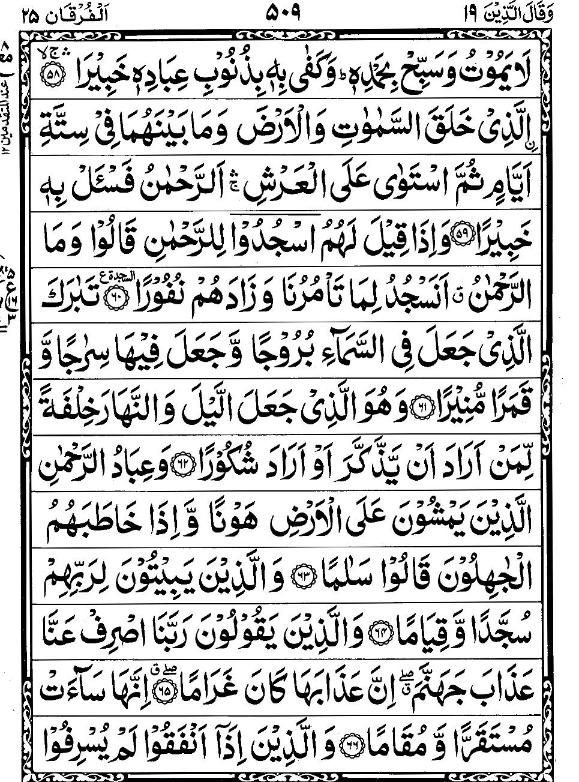 وَقَالَ الَّذِيْنَ ١٩ ۵۰۹ اَلْفُرْقَان ٢٥
لَا يَمُوْتُ وَسَبِّحْ بِحَمْدِهٖ ؕ وَكَفٰى بِهٖ بِذُنُوْبِ عِبَادِهٖ خَبِيْرَا ۚۛۙ ﴿٥٨﴾
الَّذِىْ خَلَقَ السَّمٰوٰتِ وَالْاَرْضَ وَمَا بَيْنَهُمَا فِىْ سِتَّةِ
اَيَّامٍ ثُمَّ اسْتَوٰى عَلَى الْعَرْشِ ۚۛ اَلرَّحْمٰنُ فَسْئَلْ بِهٖ
خَبِيْرًا ﴿٥٩﴾ وَاِذَا قِيْلَ لَهُمُ اسْجُدُوْا لِلرَّحْمٰنِ قَالُوْا وَمَا
الرَّحْمٰنُ ق اَنَسْجُدُ لِمَا تَاْمُرُنَا وَزَادَهُمْ نُفُوْرًا ﴿٦٠﴾ السجدة ع تَبٰرَكَ
الَّذِىْ جَعَلَ فِى السَّمَآءِ بُرُوْجًا وَّجَعَلَ فِيْهَا سِرٰجًا وَّ
قَمَرًا مُّنِيْرًا ﴿٦١﴾ وَهُوَ الَّذِىْ جَعَلَ الَّيْلَ وَالنَّهَارَ خِلْفَةً
لِّمَنْ اَرَادَ اَنْ يَّذَّكَّرَ اَوْ اَرَادَ شُكُوْرًا ﴿٦٢﴾ وَعِبَادُ الرَّحْمٰنِ
الَّذِيْنَ يَمْشُوْنَ عَلَى الْاَرْضِ هَوْنًا وَّاِذَا خَاطَبَهُمُ
الْجٰهِلُوْنَ قَالُوْا سَلٰمًا ﴿٦٣﴾ وَالَّذِيْنَ يَبِيْتُوْنَ لِرَبِّهِمْ
سُجَّدًا وَّقِيَامًا ﴿٦٤﴾ وَالَّذِيْنَ يَقُوْلُوْنَ رَبَّنَا اصْرِفْ عَنَّا
عَذَابَ جَهَنَّمَ ۖق اِنَّ عَذَابَهَا كَانَ غَرَامًا ۖق ﴿٦٥﴾ اِنَّهَا سَآءَتْ
مُسْتَقَرًّا وَّمُقَامًا ﴿٦٦﴾ وَالَّذِيْنَ اِذَاۤ اَنْفَقُوْا لَمْ يُسْرِفُوْا